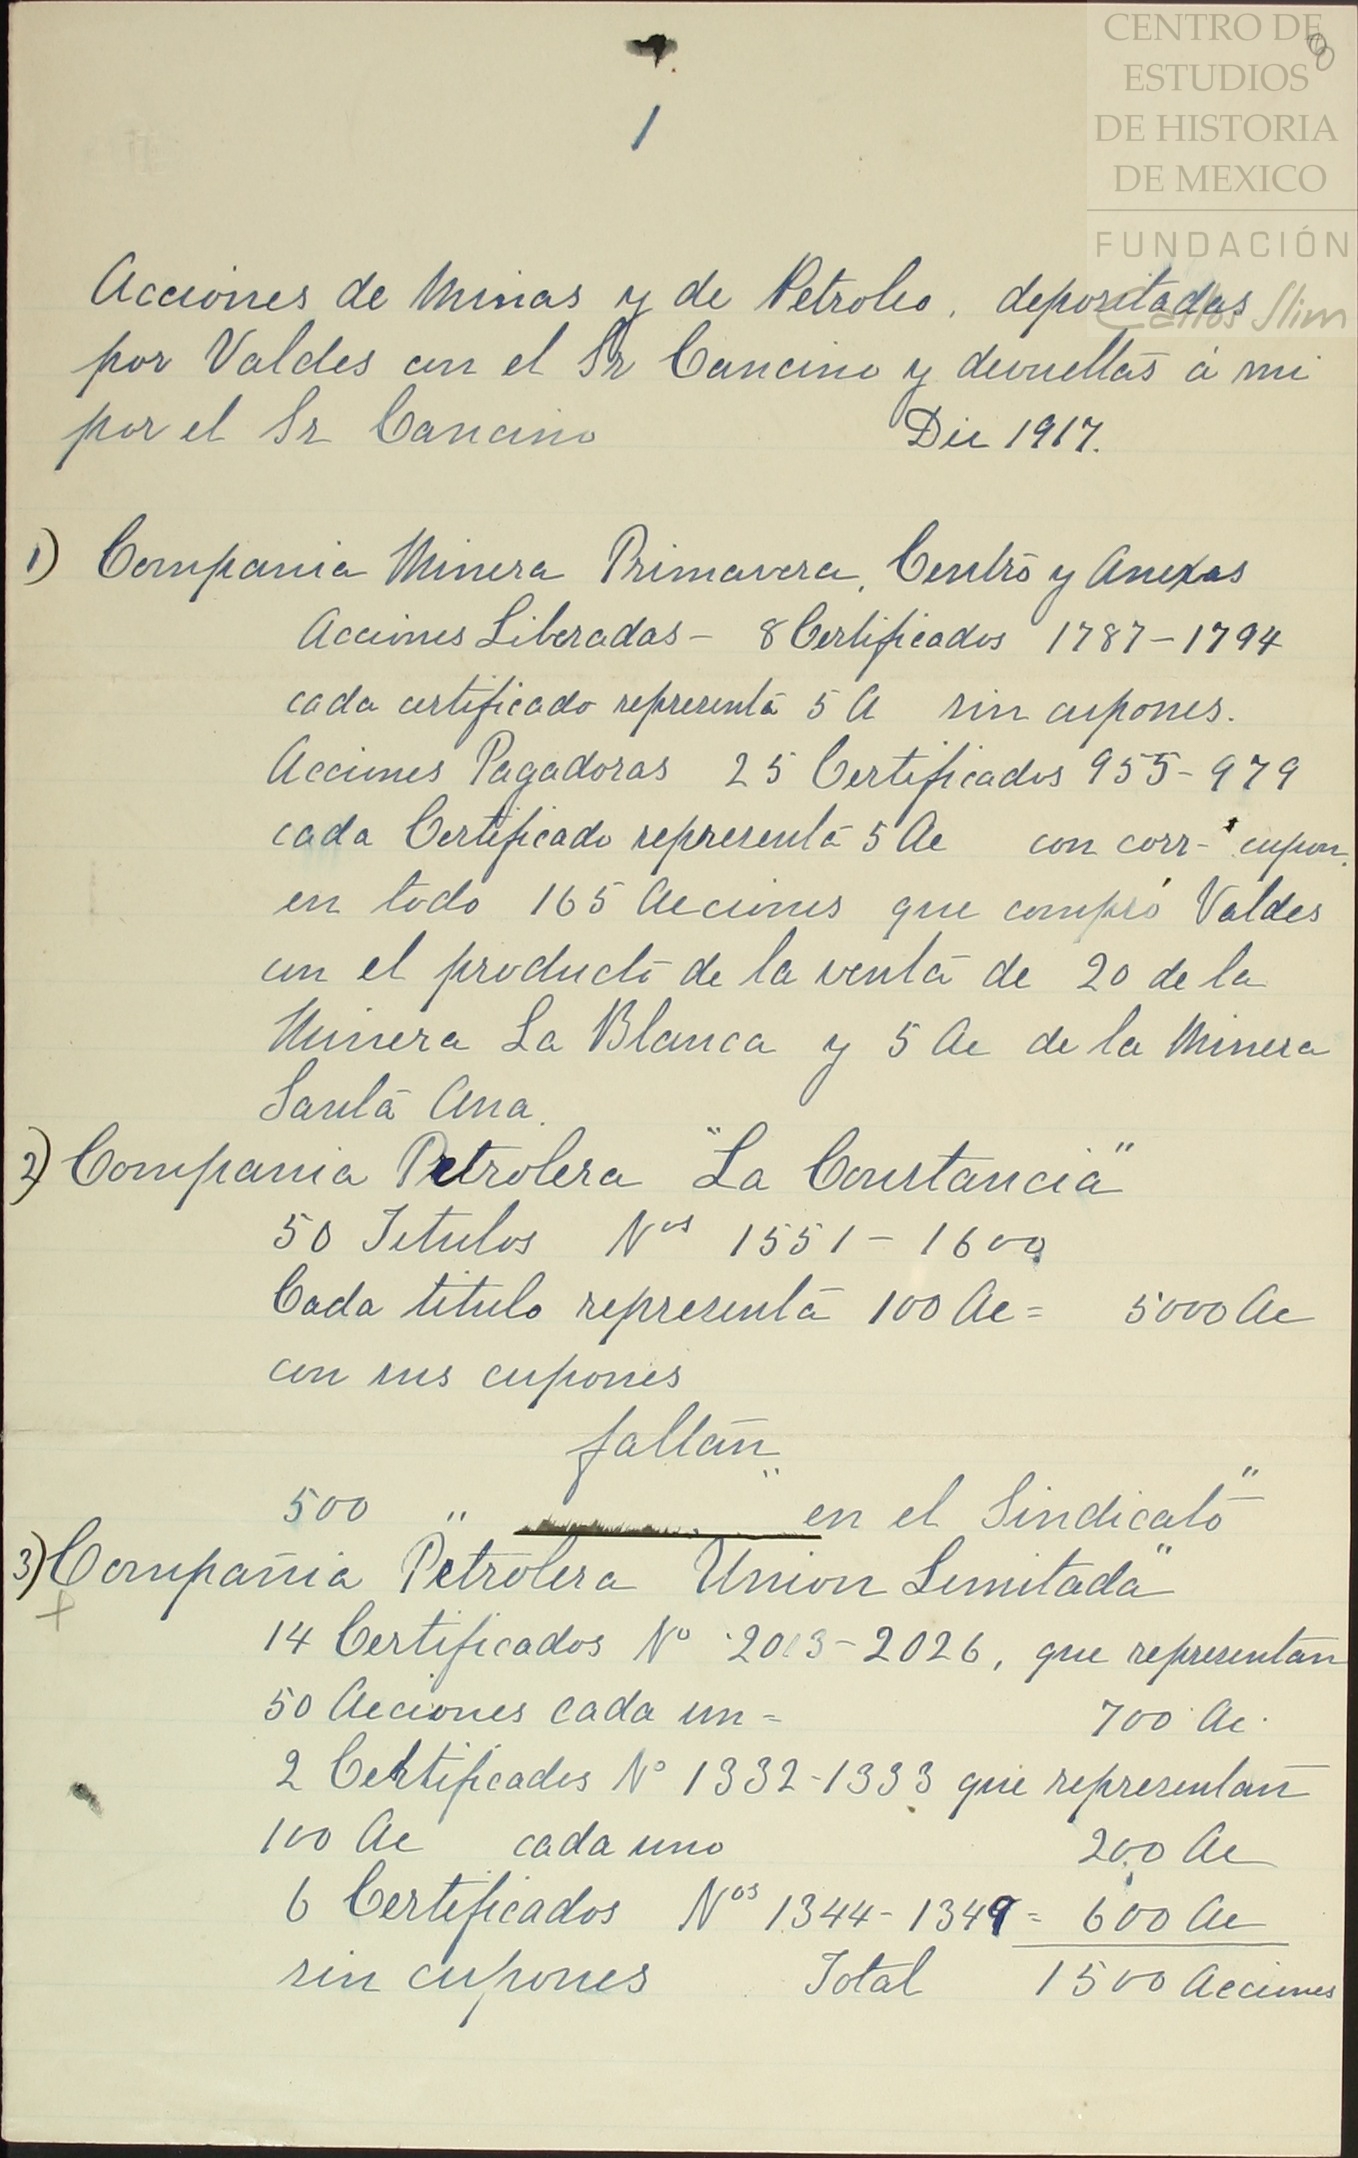 CENTRO DE
ESTUDIOS
DE HISTORIA
DE MEXICO
FUNDACIÓN
Carlos Slim
8
1
Acciones de Minas y de Petroleo, depositadas
por Valdes con el Sr Cancino y devueltas á mi
por el Sr Cancino Dic 1917.
1) Compania Minera Primavera, Centro y Anexas
Acciones Liberadas - 8 Certificados 1787-1794
cada certificado representa 5 A sin cupones.
Acciones Pagadoras 25 Certificados 955-979
cada Certificado representa 5 Ac con corr- cupon.
en todo 165 Acciones que compró Valdes
con el producto de la venta de 20 de la
Minera La Blanca y 5 Ac de la Minera
Santa Ana.
2) Compania Petrolera "La Constancia"
50 Titulos Nos 1551-1600
Cada titulo representa 100 Ac = 5000 Ac
con sus cupones
faltan
500 " " en el Sindicato"
3) Compañia Petrolera Union Limitada"
14 Certificados No 2013-2026, que representan
50 Acciones cada un = 700 Ac.
2 Certificados No 1332-1333 que representan
100 Ac cada uno 200 Ac
6 Certificados Nos 1344-1349 = 600 Ac
sin cupones Total 1500 Acciones